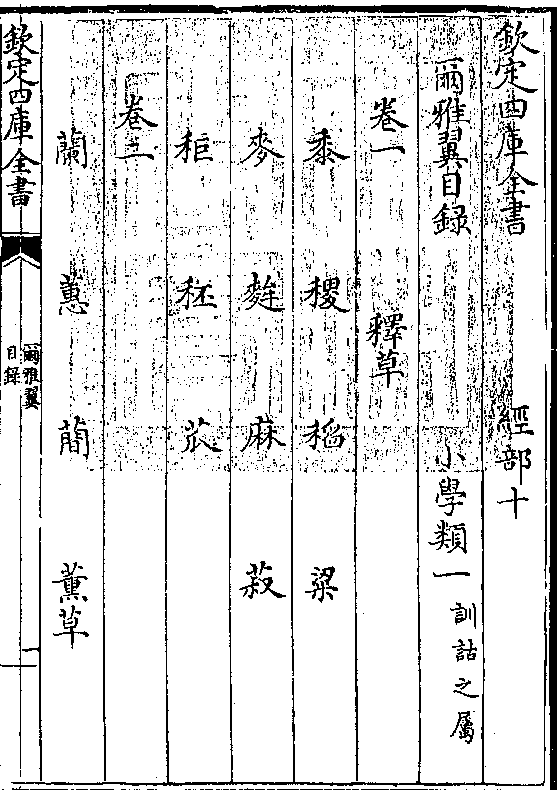 欽定四庫全書 經部十
爾雅翼目録 小學類一 訓詁之屬
卷一 釋草
黍 稷 稻 粱
麥 麰 麻 菽
秬 秠 苽
卷二
蘭 蕙 蕳 薰草
欽定四庫全書 爾雅翼 目録 一